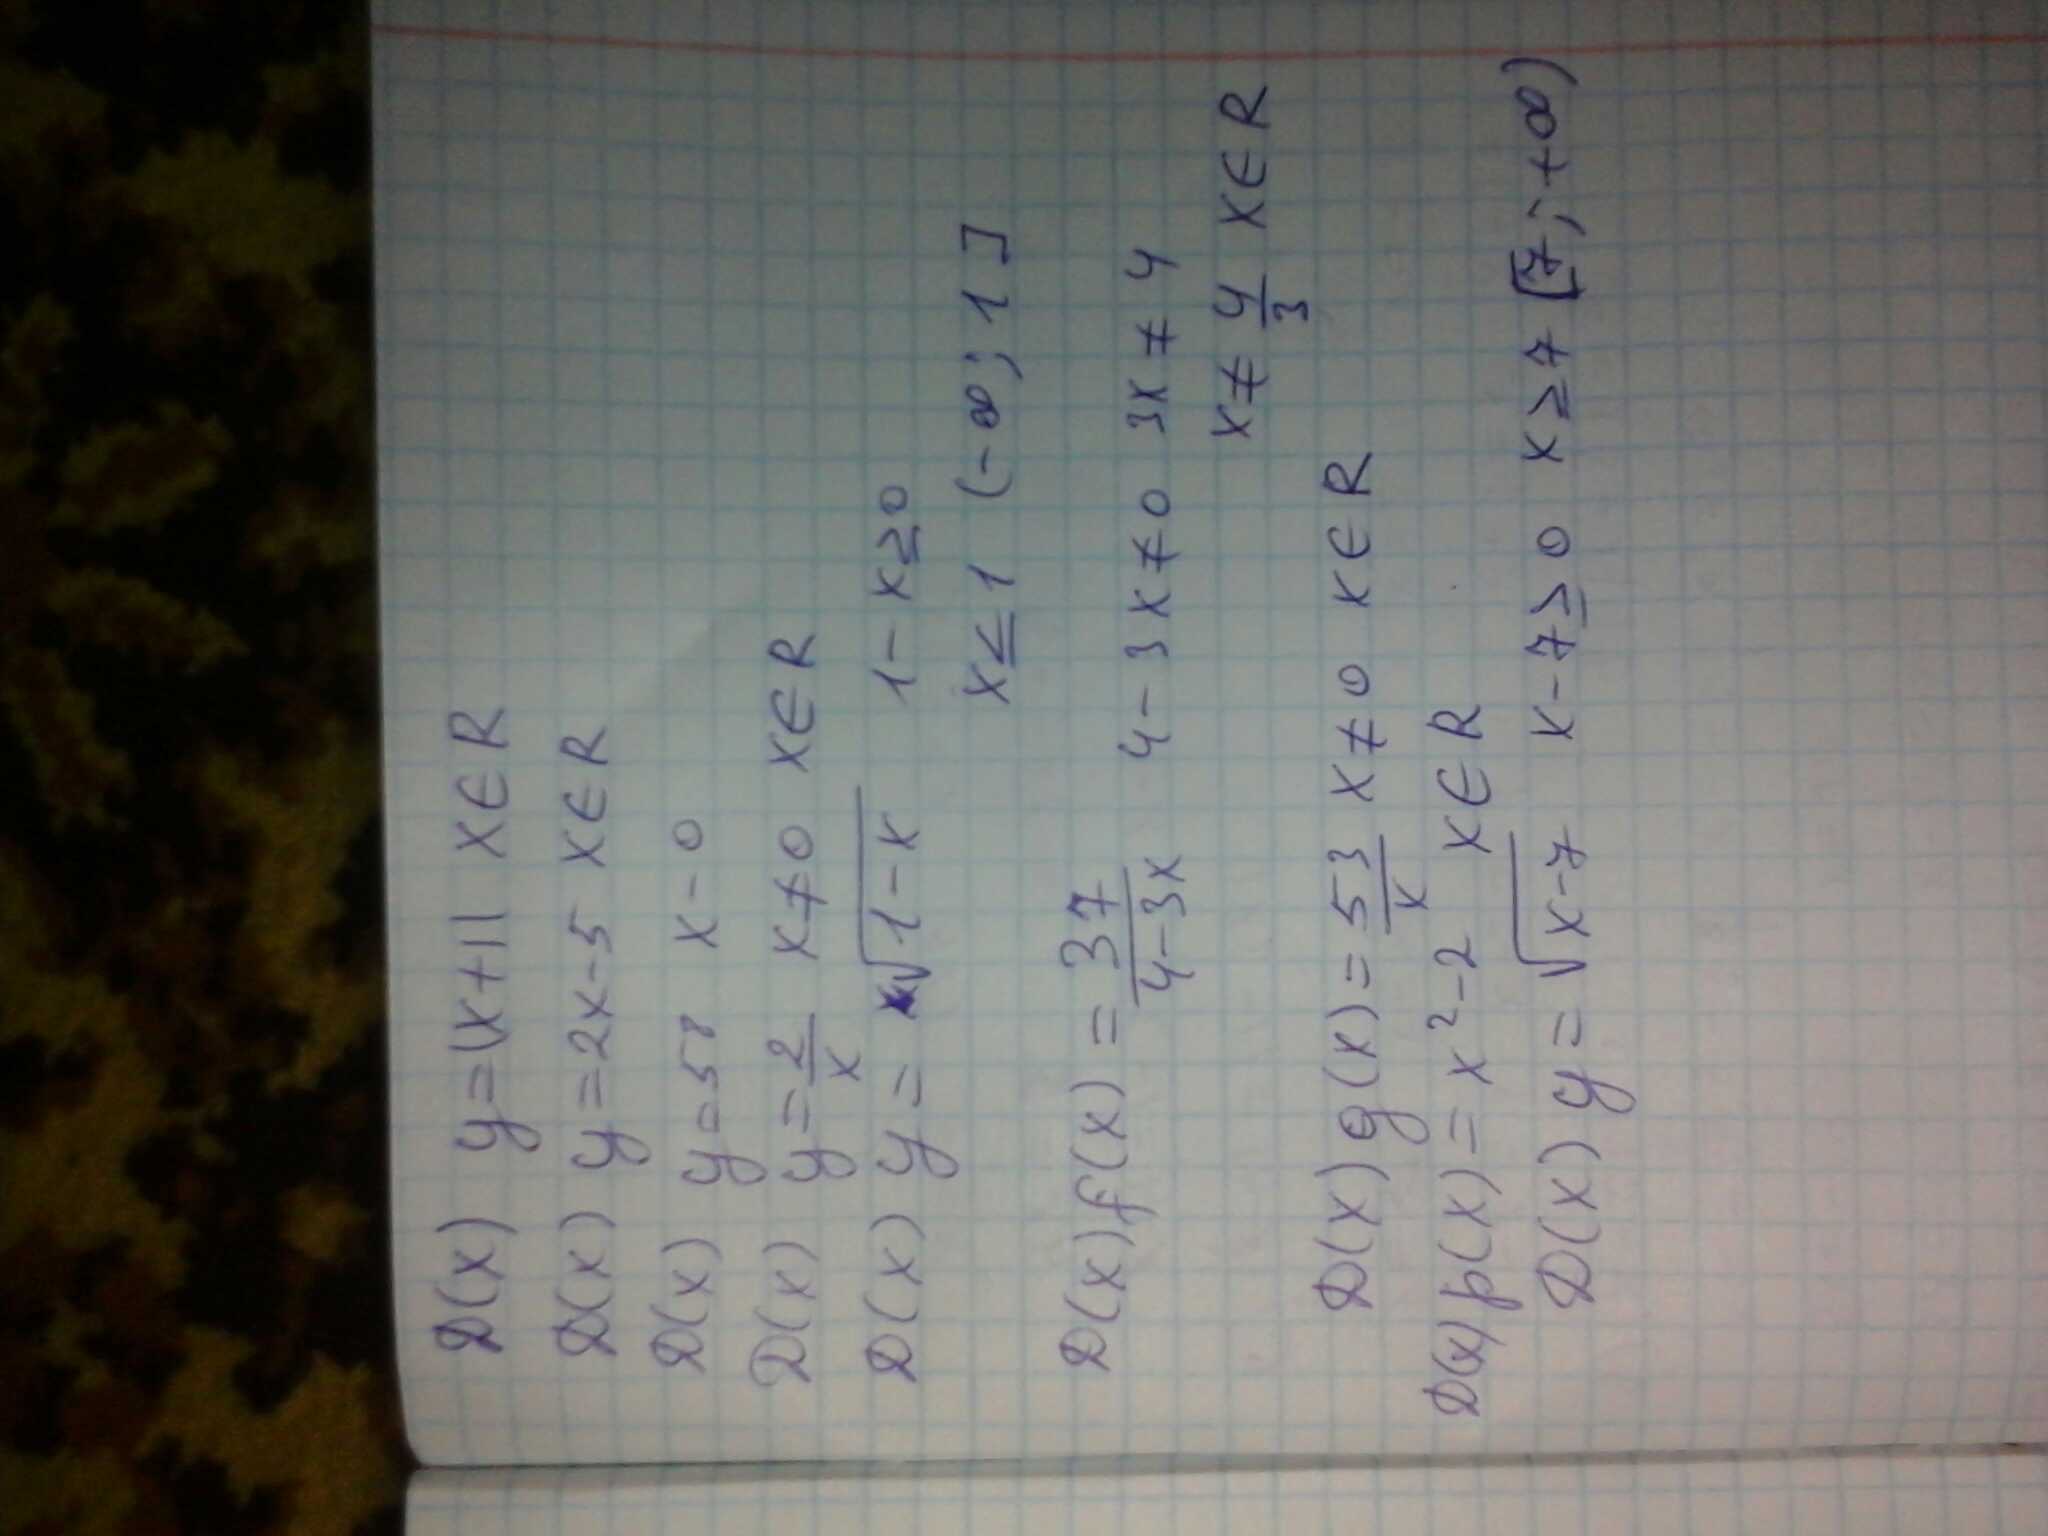 D(x) y=|x+1| x∈R
D(x) y=2x-5 x∈R
D(x) y=58 x-0
D(x) y=2/x x≠0 x∈R
D(x) y= √(1-x) 1-x≥0
x≤1 (-∞; 1]
D(x) f(x) = 37/(4-3x) 4-3x≠0 3x≠4
x≠4/3 x∈R
D(x) g(x)=53/x x≠0 x∈R
D(x) p(x)=x²-2 x∈R
D(x) y=√(x-7) x-7≥0 x≥7 [7; +∞)